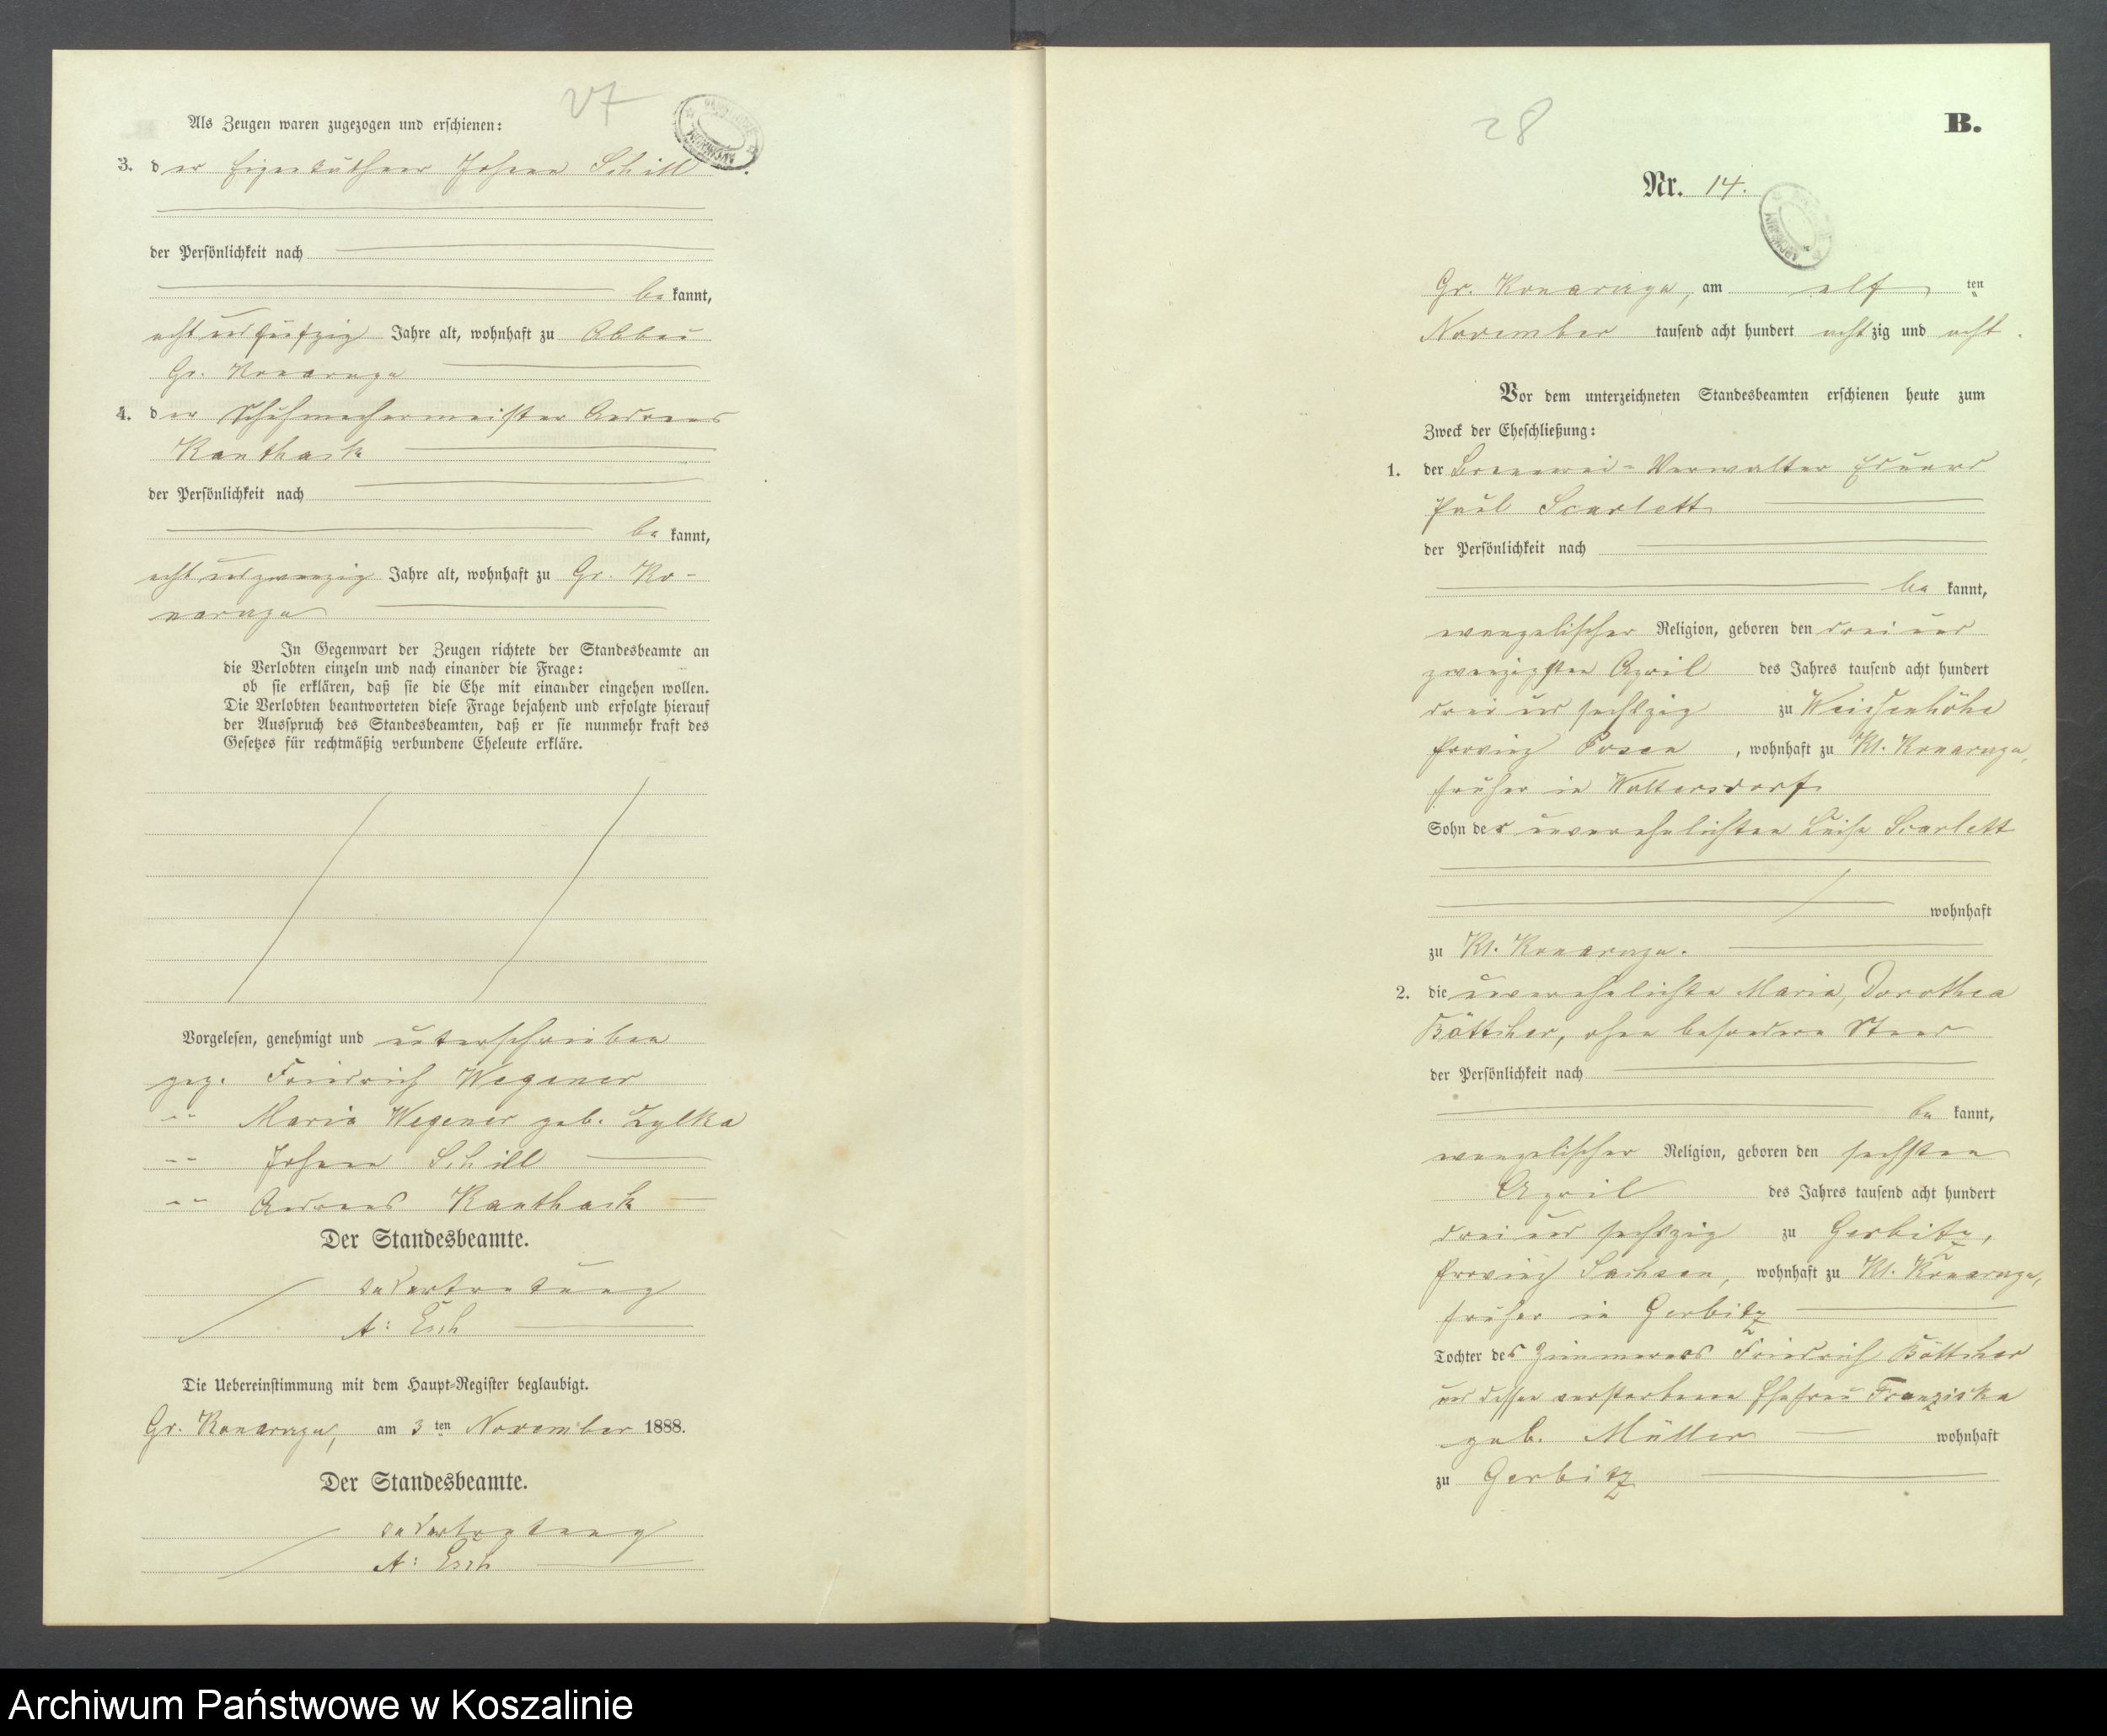 27
Als Zeugen waren zugezogen und erschienen:
3. der Eigenthümer Johann Schill
der Persönlichkeit nach
bekannt,
acht und fünfzig Jahre alt, wohnhaft zu Abbau
Gr. Konarzyn
4. der Schuhmachermeister Andreas
Kanthack
der Persönlichkeit nach
bekannt,
acht und zwanzig Jahre alt, wohnhaft zu Gr. Ko-
narzyn
In Gegenwart der Zeugen richtete der Standesbeamte an
die Verlobten einzeln und nach einander die Frage:
ob sie erklären, daß sie die Ehe mit einander eingehen wollen.
Die Verlobten beantworteten diese Frage bejahend und erfolgte hierauf
der Ausspruch des Standesbeamten, daß er sie nunmehr kraft des
Gesetzes für rechtmäßig verbundene Eheleute erkläre.
Vorgelesen, genehmigt und unterschrieben
gez. Friedrich Wegener
" Maria Wegener geb. Zylka
" Johann Schill
" Andreas Kanthack
Der Standesbeamte.
In Vertretung
A: Esch
Die Uebereinstimmung mit dem Haupt-Register beglaubigt.
Gr. Konarzyn, am 3ten November 1888.
Der Standesbeamte.
In Vertretung
A: Esch
28
B.
Nr. 14.
Gr. Konarzyn, am elften
November tausend acht hundert achtzig und acht.
Vor dem unterzeichneten Standesbeamten erschienen heute zum
Zweck der Eheschließung:
1. der Brennerei-Verwalter Eduard
Paul Scarlett
der Persönlichkeit nach
bekannt,
evangelischer Religion, geboren den drei und
zwanzigsten April des Jahres tausend acht hundert
drei und sechszig zu Weissenhöhe
Provinz Posen, wohnhaft zu Kl. Konarzyn,
früher in Woltersdorf
Sohn der unverehelichten Luise Scarlett
wohnhaft
zu Kl. Konarzyn.
2. die unverehelichte Maria, Dorothea
Böttcher, ohne besondern Stand
der Persönlichkeit nach
bekannt,
evangelischer Religion, geboren den sechsten
April des Jahres tausend acht hundert
drei und sechszig zu Gerbitz,
Provinz Sachsen, wohnhaft zu Kl. Konarzyn,
früher in Gerbitz
Tochter des Zimmermanns Friedrich Böttcher
und dessen verstorbene Ehefrau Franziska
geb. Müller wohnhaft
zu Gerbitz
Archiwum Państwowe w Koszalinie